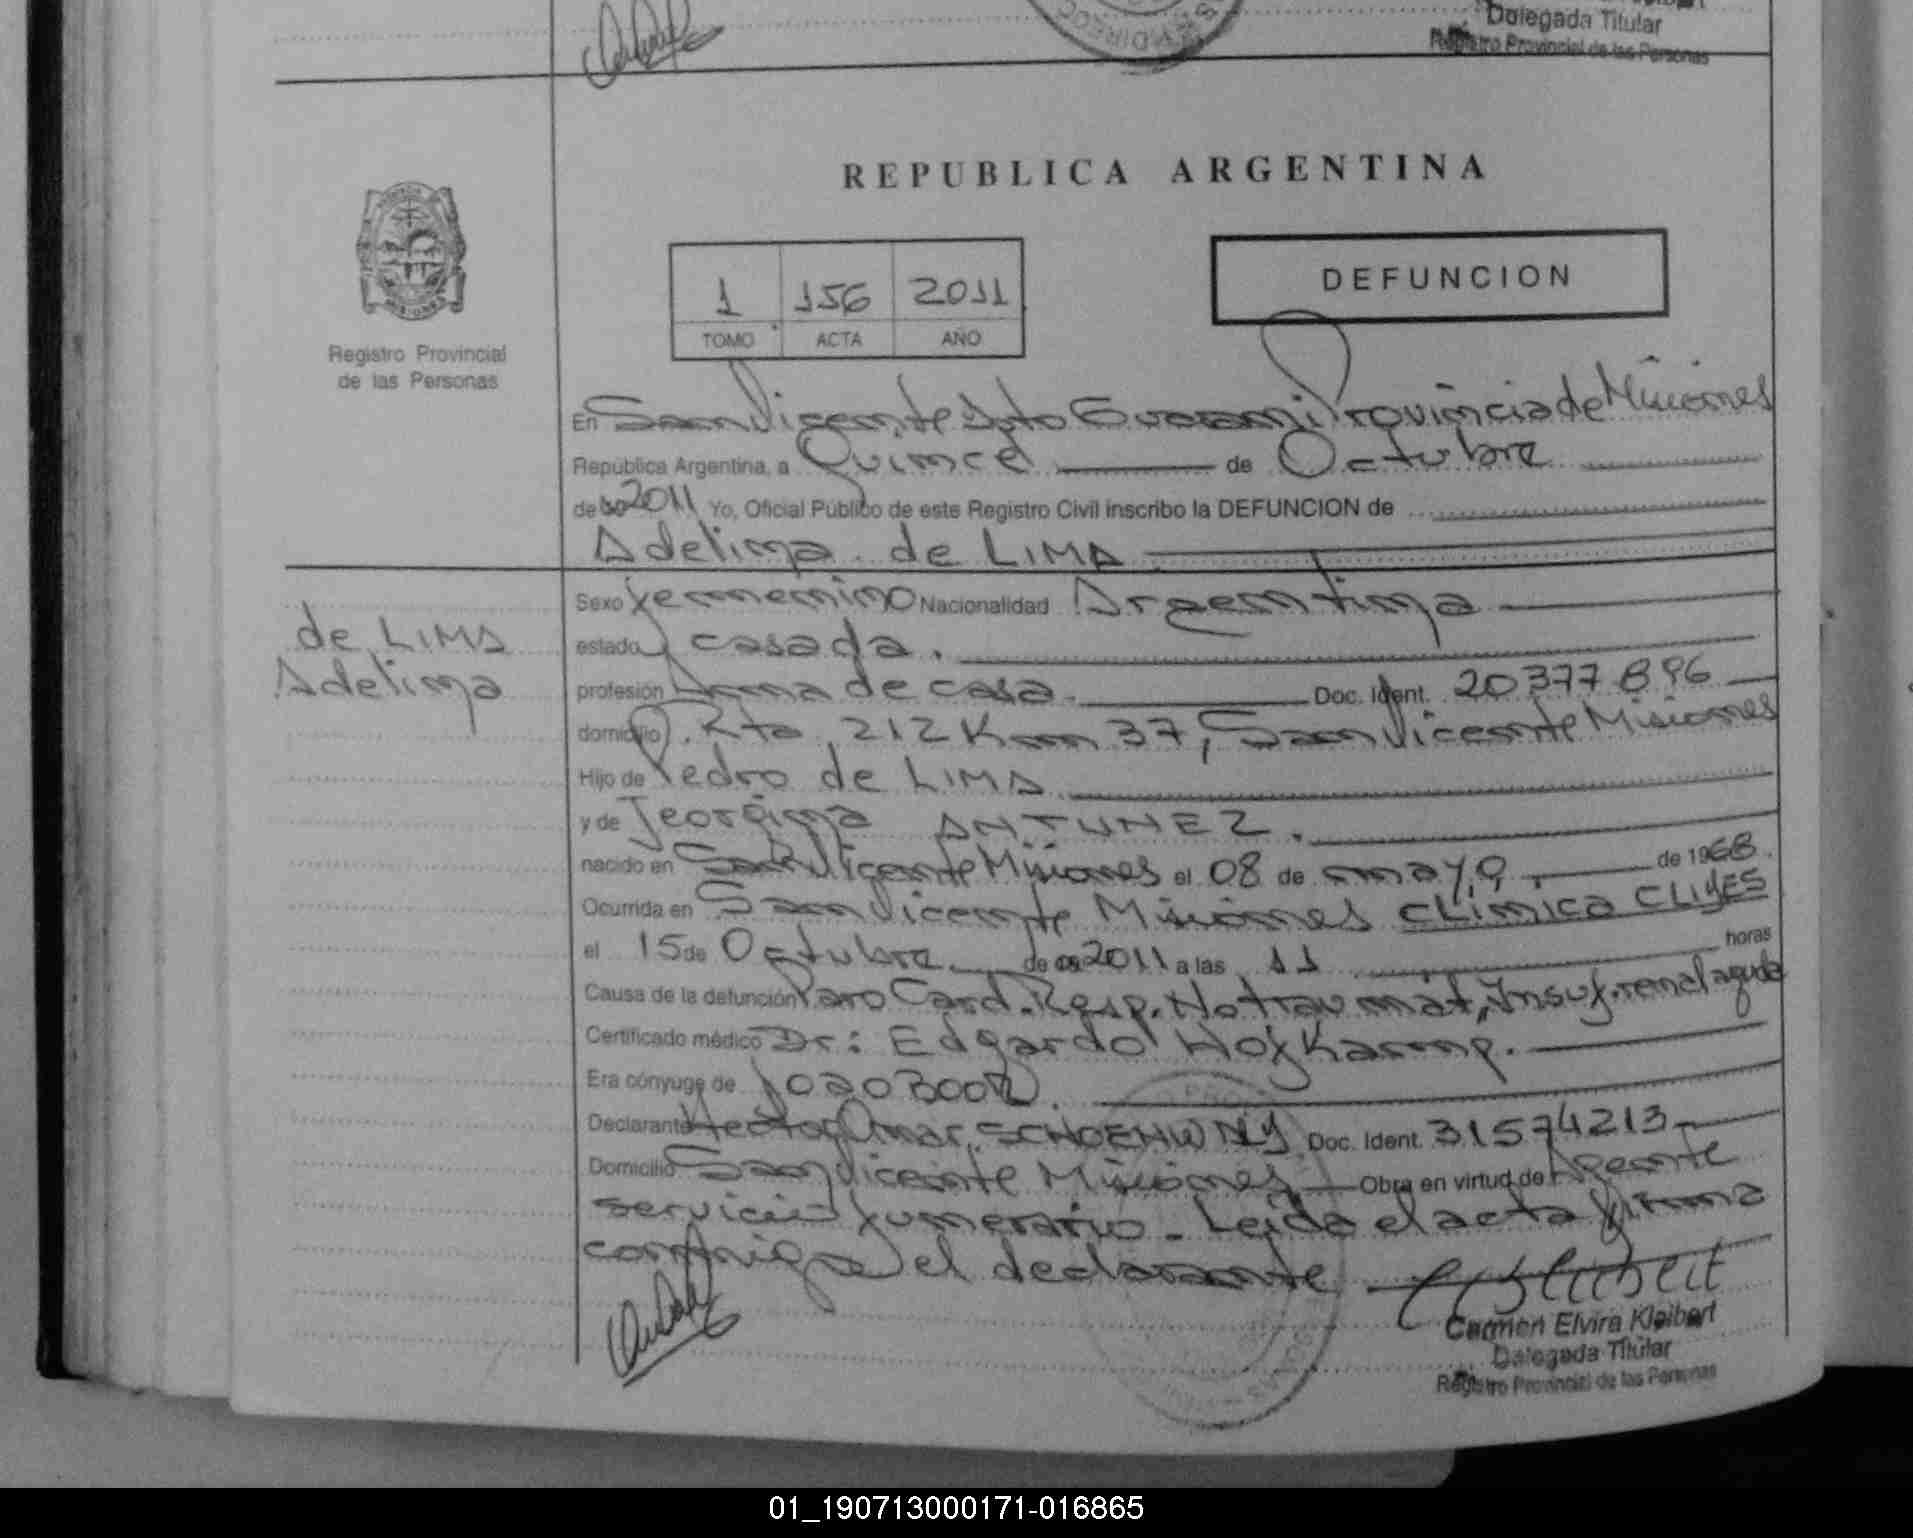 Delegada Titular
Registro Provincial de las Personas
REPUBLICA ARGENTINA
DEFUNCION
1 156 2011
TOMO ACTA AÑO
Registro Provincial
de las Personas
En San Vicente Dpto Guarani Provincia de Misiones
República Argentina, a Quince de Octubre
de 2011 Yo, Oficial Público de este Registro Civil inscribo la DEFUNCION de
Adelina de LIMA
de LIMA
Adelina
Sexo femenino Nacionalidad Argentina
estado casada.
profesión Ama de casa. Doc. Ident. 20377896
domicilio Rta 212 Km 37, San Vicente Misiones
Hijo de Pedro de LIMA
y de Jeorgina ANTUNEZ.
nacido en San Vicente Misiones el 08 de mayo de 1968.
Ocurrida en San Vicente Misiones Clinica CLIYES
el 15 de Octubre de 2011 a las 11 horas
Causa de la defunción Paro Card. Resp. No traumat, Insuf. renal aguda
Certificado médico Dr: Edgardo Hofkamp.
Era cónyuge de Joao BOOZ.
Declarante Hector Omar Doc. Ident. 31574213
Domicilio San Vicente Misiones Obra en virtud de Agente
servicio funerario. Leida el acta firma
conmigo el declarante
Carmen Elvira Klaibert
Delegada Titular
Registro Provincial de las Personas
01_190713000171-016865